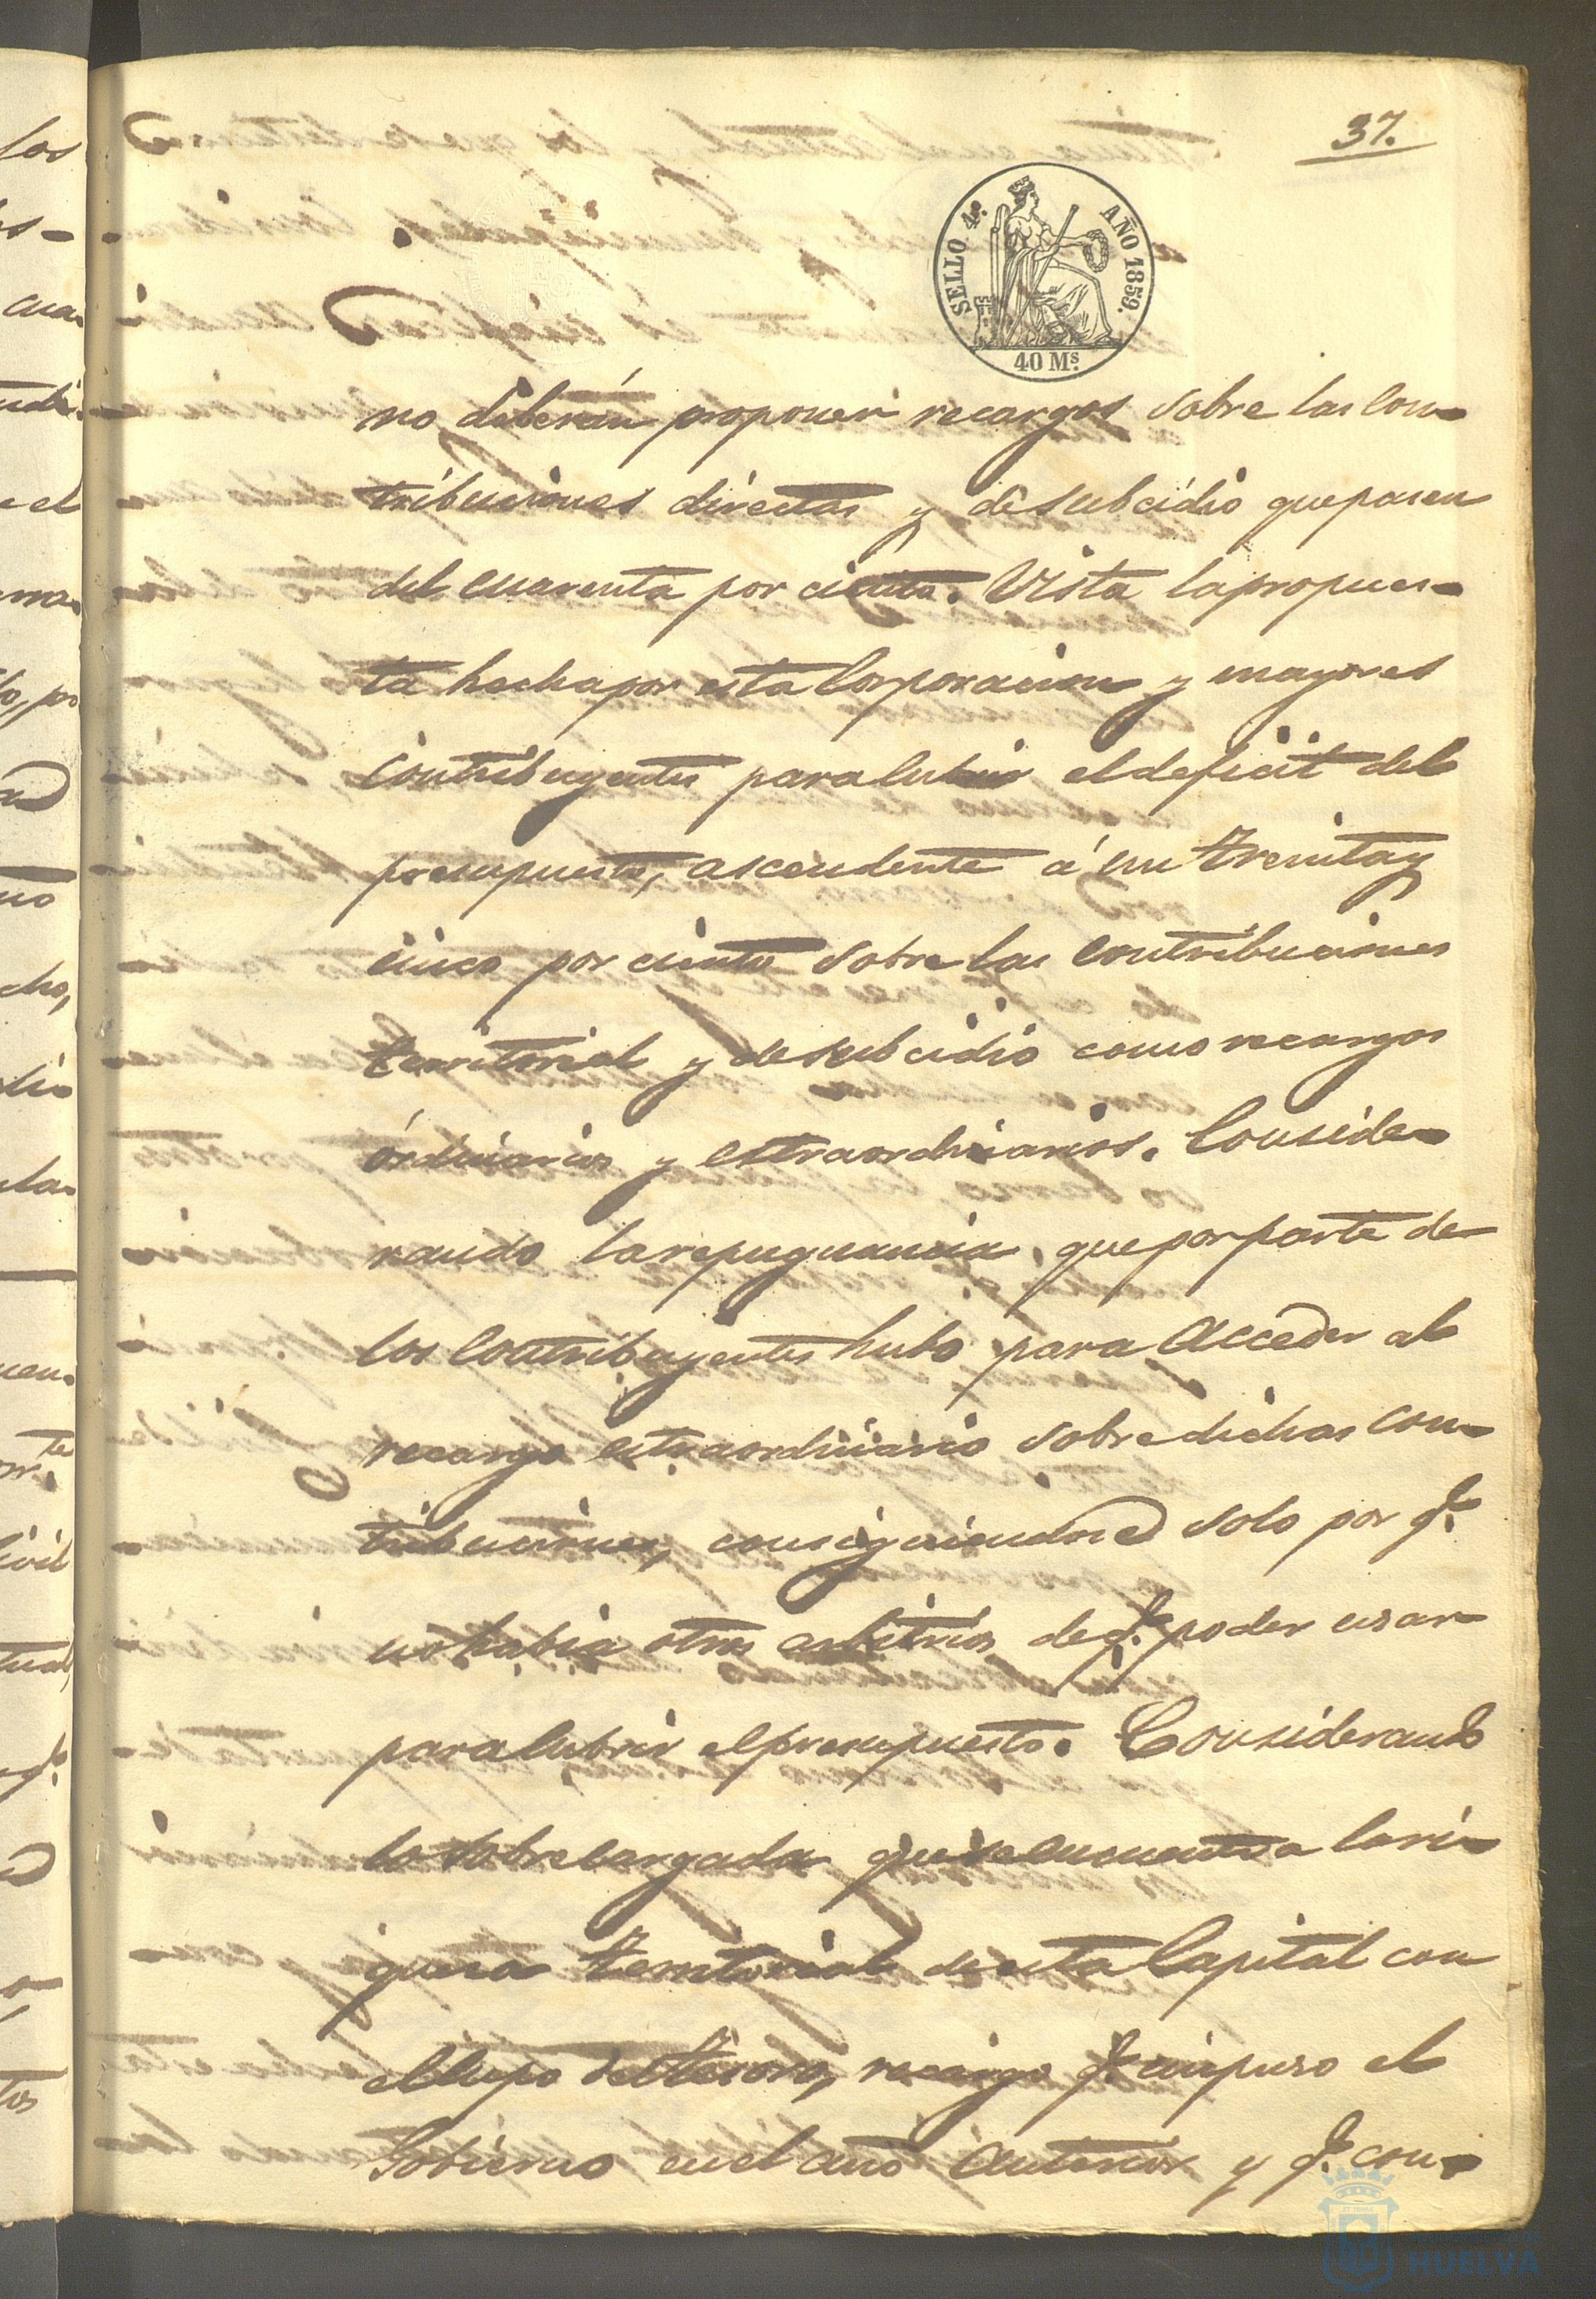 37.
SELLO 4º. AÑO 1859.
40 Ms.
no deberán proponer recargos sobre las con-
tribuciones directas y de subcidio que pasen
del cuarenta por ciento. Vista la propues-
ta hecha por esta Corporacion y mayores
contribuyentes para cubrir el deficit del
presupuesto, ascendente á un treinta y
cinco por ciento sobre las contribuciones
territorial y de subcidio como recargos
órdinarios y estraordinarios. Conside-
rando la repugnancia, que por parte de
los contribuyentes hubo para acceder al
recargo estraordinario sobre dichas con-
tribuciones, consiguiendose solo por q.e
no habia otros arbitrios de q.e poder usar
para cubrir el presupuesto. Considerando
lo sobrecargada que se encuentra la ri-
queza territorial de esta Capital con
el cupo del tesoro, recargo q.e impuso el
Gobierno en el año anterior y q.e con-
HUELVA